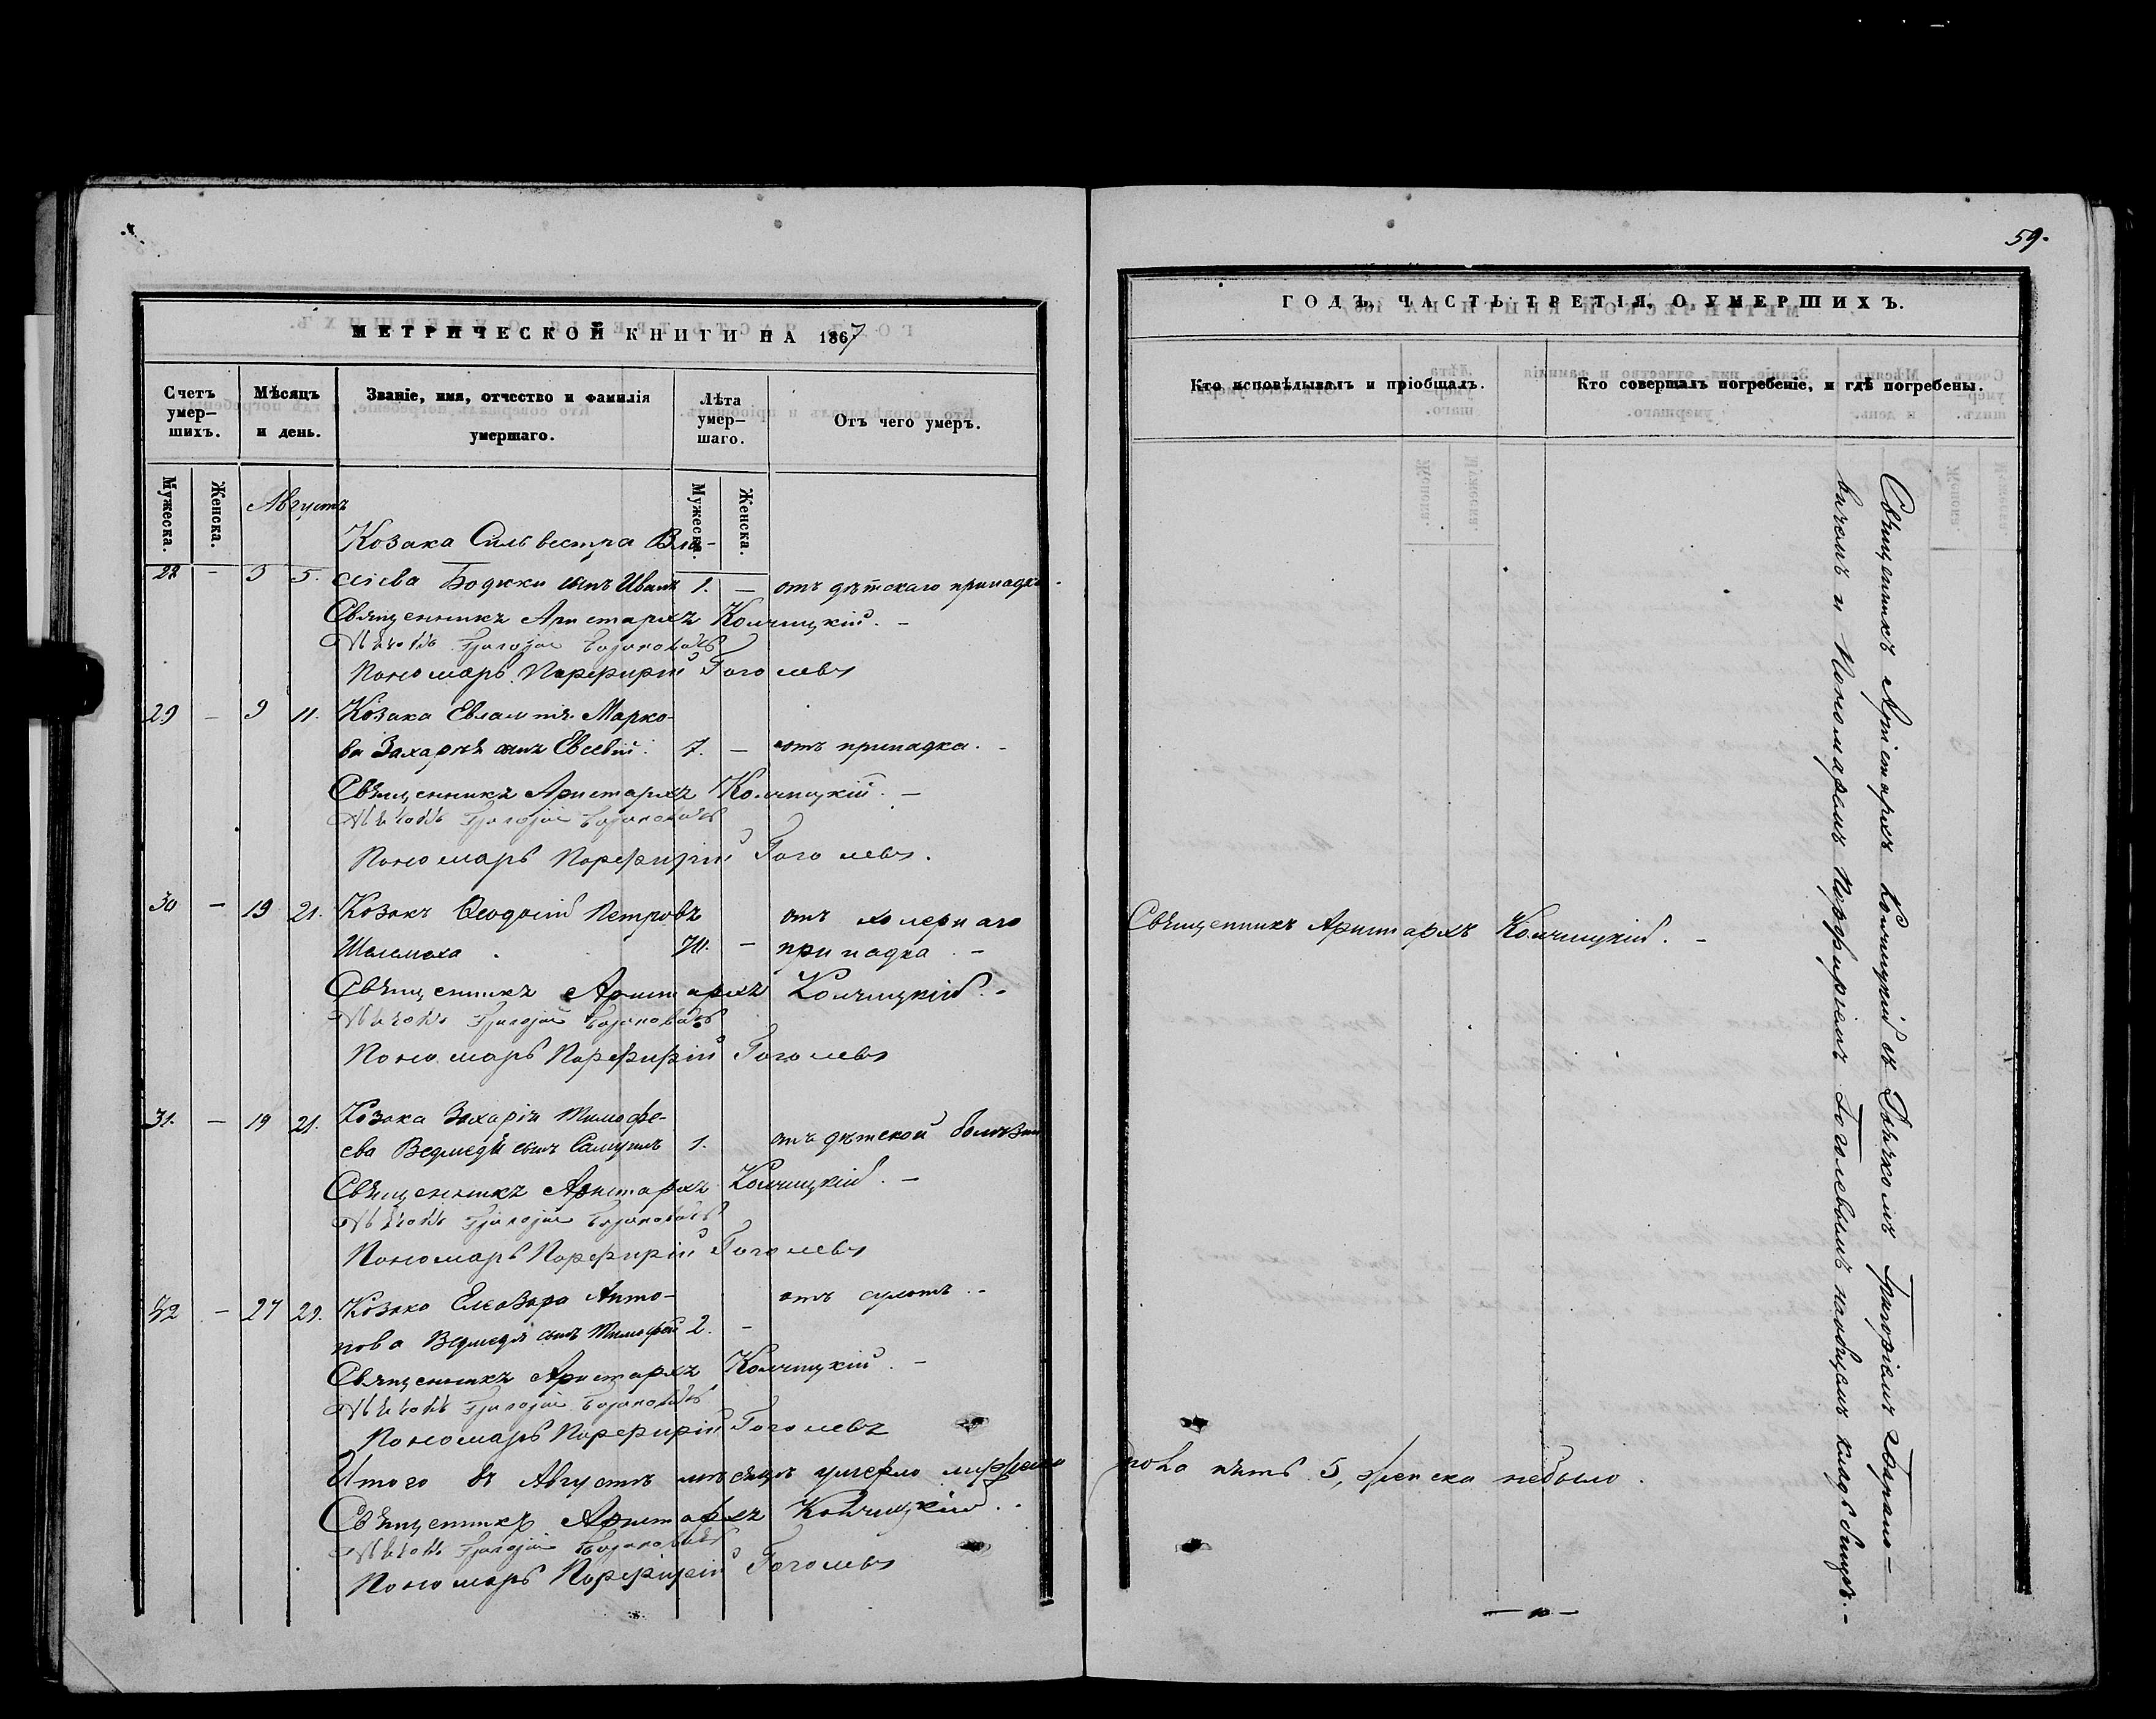 59.
МЕТРИЧЕСКОЙ КНИГИ НА 1867
Счетъ умер-шихъ.
Мѣсяцъ и день.
Званіе, имя, отчество и фамилія умершаго.
Лѣта умер-шаго.
Отъ чего умеръ.
Мужеска.
Женска.
Мужеска.
Женска.
Августъ
Козака Сильвестра Вла-
28 - 3 5. сіева Бодики сынъ Иванъ 1. - отъ дѣтскаго припадка.
Священникъ Аристархъ Колчицкій. -
Дьячокъ Григорій
Пономарь Порфирій Гоголевъ
29 - 9 11. Козака Евлампія Марко-
ва Захарчѣ сынъ Евсевій. 7. - отъ припадка. -
Священникъ Аристархъ Колчицкій. -
Дьячокъ Григорій
Пономарь Порфирій Гоголевъ.
30 - 19 21. Козакъ Ѳеодосій Петровъ отъ холернаго
Шаламаха. - припадка. -
Священникъ Аристархъ Колчицкій. -
Дьячокъ Григорій
Пономарь Порфирій Гоголевъ
31. - 19 21. Козака Захарія Тимофе-
ева Ведмедя сынъ Самуилъ 1. отъ дѣтской болѣзни
Священникъ Аристархъ Колчицкій. -
Дьячокъ Григорій
Пономарь Порфирій Гоголевъ
32 - 27 29. Козака Елеазара Анто- отъ -
нова Ведмедя сынъ Тимофей 2. -
Священникъ Аристархъ Колчицкій. -
Дьячокъ Григорій
Пономарь Порфирій Гоголевъ
Итого въ Августѣ мѣсяцѣ умерло мужеска
Священникъ Аристархъ Колчицкій.
Дьячокъ Григорій
Пономарь Порфирій Гоголевъ
ГОДЪ, ЧАСТЬ ТРЕТІЯ, О УМЕРШИХЪ.
Кто исповѣдывалъ и пріобщалъ.
Кто совершалъ погребеніе, и гдѣ погребены.
Священникъ Аристархъ Колчицкій. -
пола пять 5, женска небыло.
Священникъ Аристархъ Колчицкій съ Дьячкомъ Григоріемъ Барано-
вичемъ и Пономаремъ Порфиріемъ Гоголевымъ на общемъ кладбищѣ. -